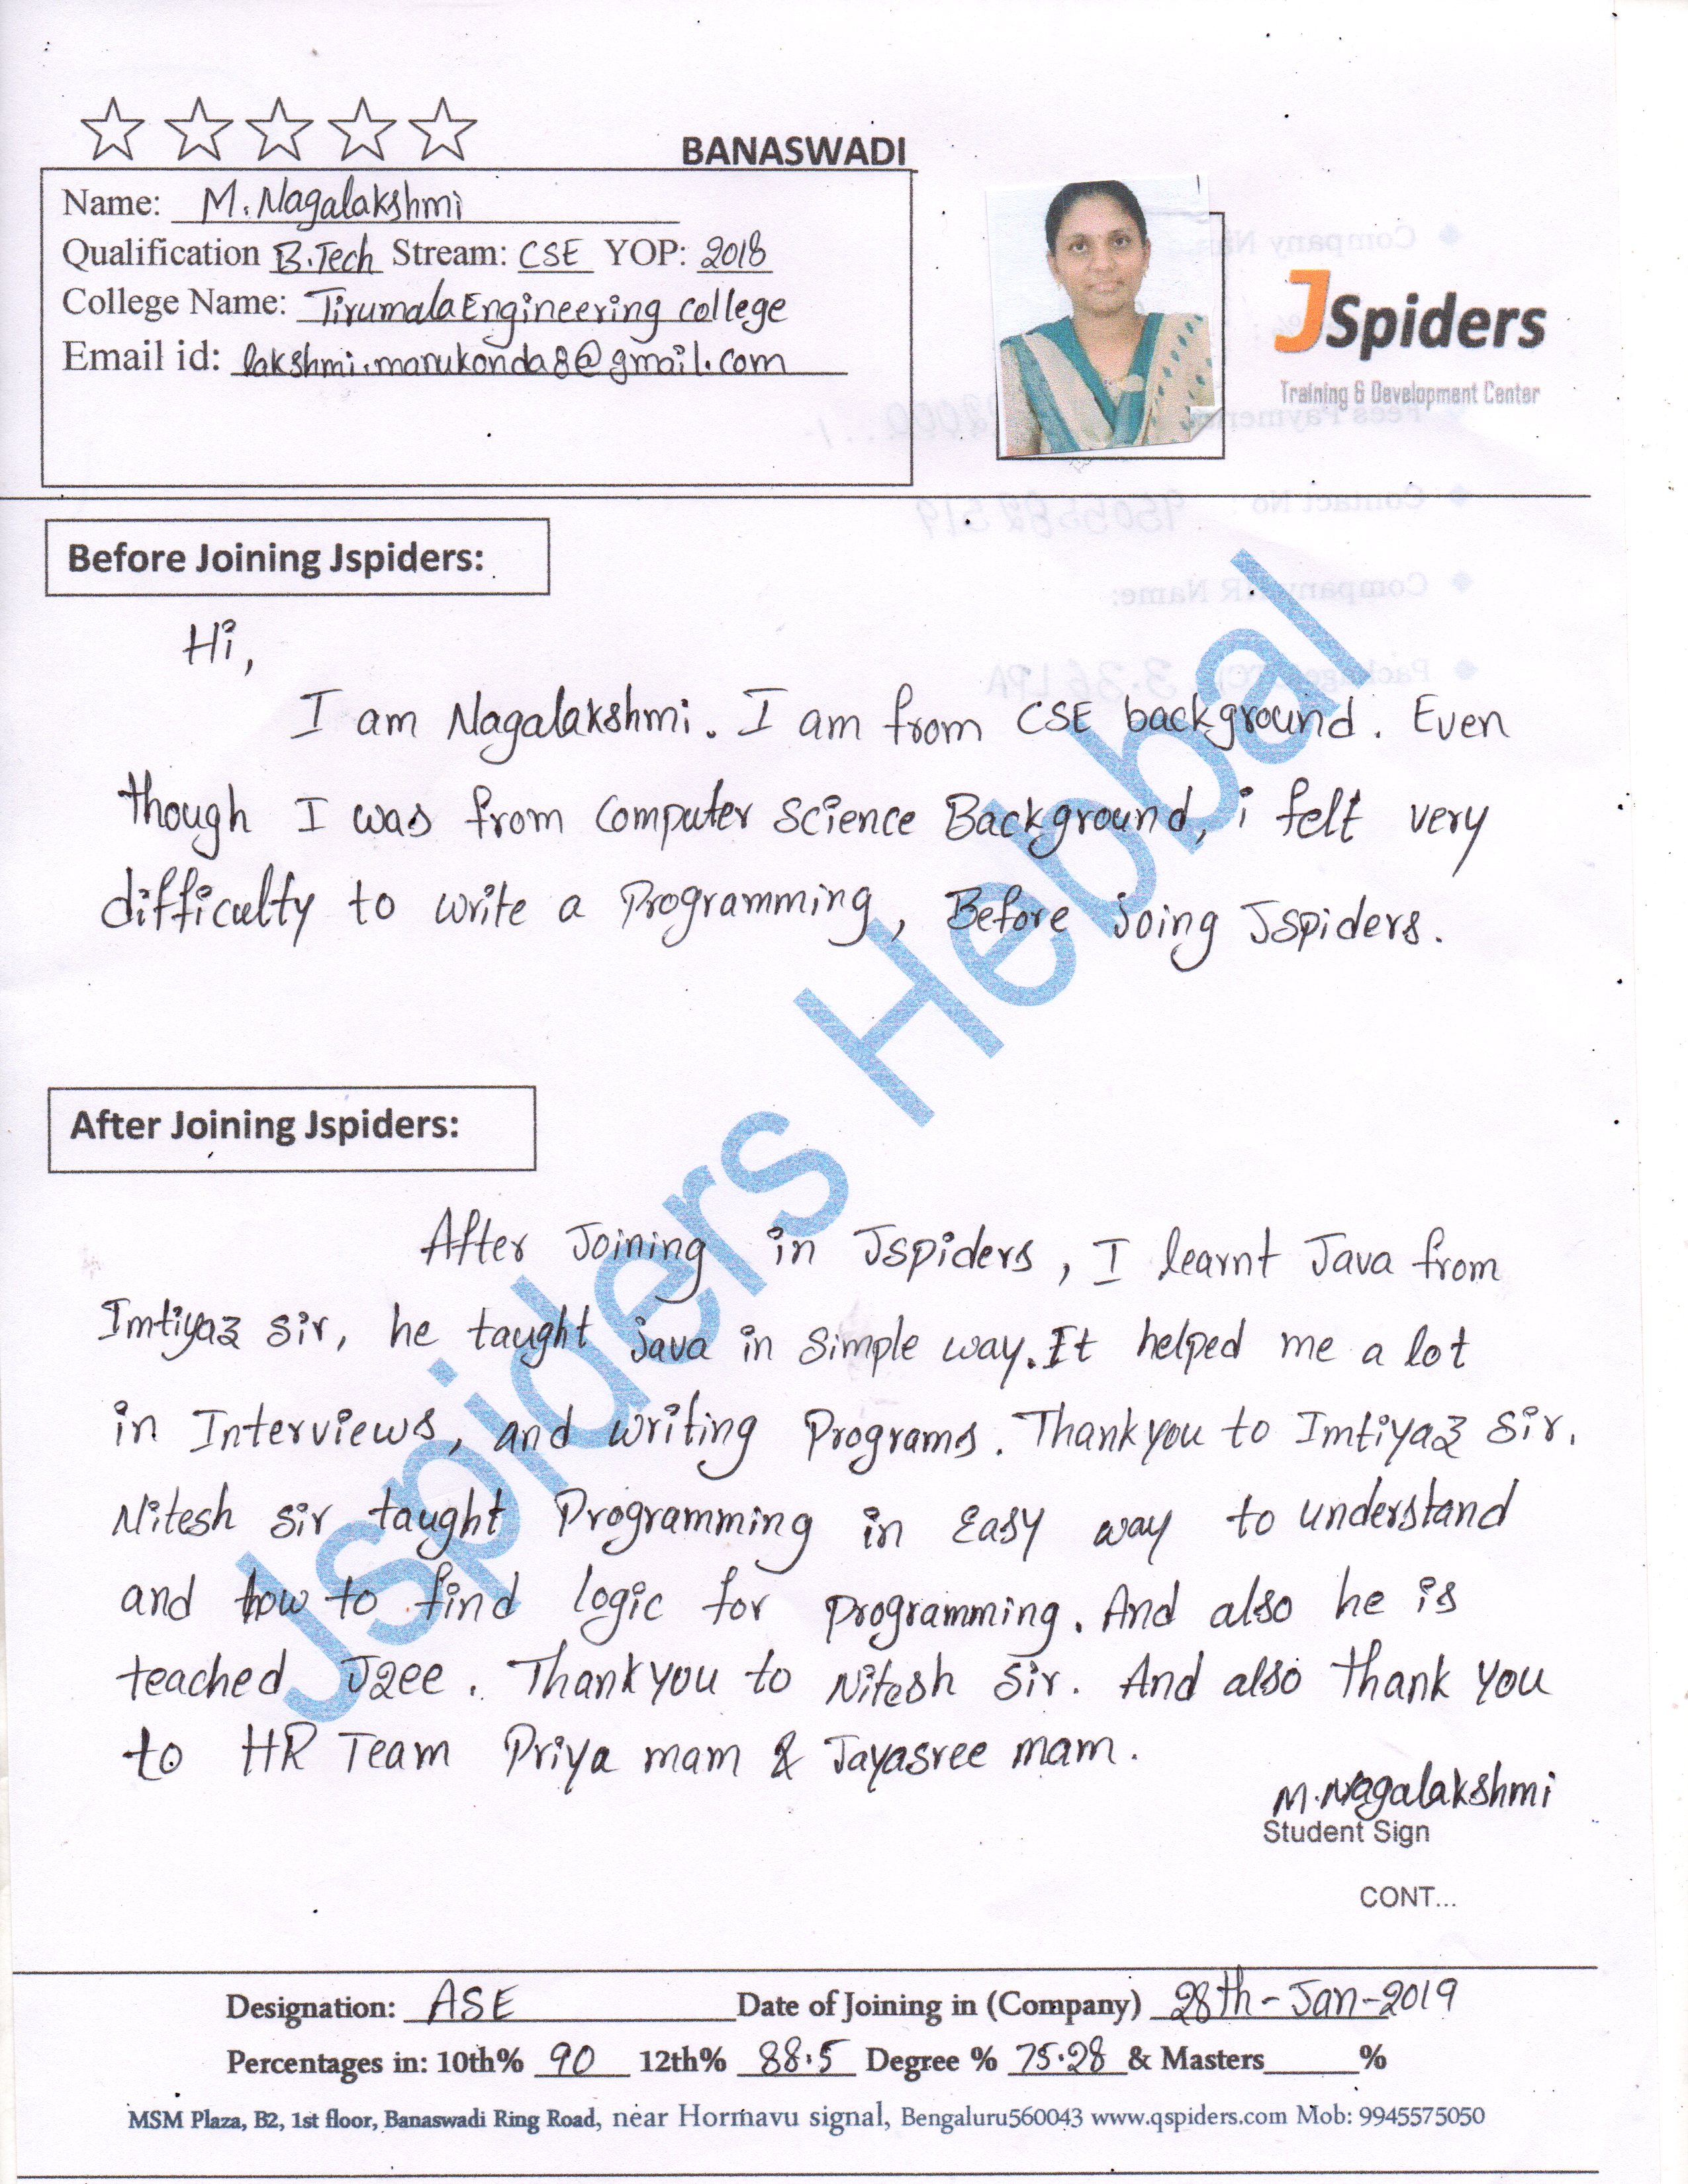 BANASWADI
Name: M. Nagalakshmi
Qualification B.Tech Stream: CSE YOP: 2018
College Name: Tirumala Engineering college
Email id: lakshmi.marukonda8@gmail.com
JSpiders
Training & Development Center
Before Joining Jspiders:
Hi,
I am Nagalakshmi. I am from CSE background. Even
though I was from Computer Science Background, i felt very
difficulty to write a Programming, Before joing Jspiders.
Jspiders Hebbal
After Joining Jspiders:
After Joining in Jspiders, I learnt Java from
Imtiyaz sir, he taught java in simple way. It helped me a lot
in Interviews, and writing Programs. Thankyou to Imtiyaz Sir.
Nitesh sir taught Programming in Easy way to understand
and how to find logic for programming. And also he is
teached J2ee. Thankyou to Nitesh Sir. And also thank you
to HR Team Priya mam & Jayasree mam.
M.Nagalakshmi
Student Sign
CONT...
Designation: ASE Date of Joining in (Company) 28th-Jan-2019
Percentages in: 10th% 90 12th% 88.5 Degree % 75.28 & Masters______%
MSM Plaza, B2, 1st floor, Banaswadi Ring Road, near Hormavu signal, Bengaluru560043 www.qspiders.com Mob: 9945575050